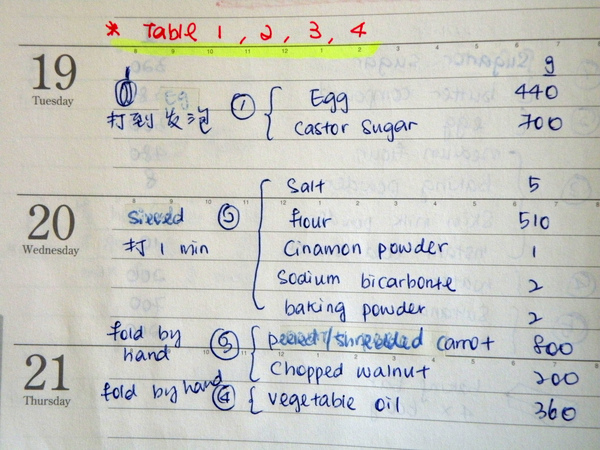 * Table 1, 2, 3, 4
19
Tuesday
g
① Egg 440
打到发泡 Castor Sugar 700
20
Wednesday
Salt 5
Sieved ② flour 510
打 1 min Cinamon powder 1
Sodium bicarbonte 2
baking powder 2
fold by hand ③ peeled/shredded carrot 800
Chopped walnut 200
21
Thursday
fold by hand ④ vegetable oil 360